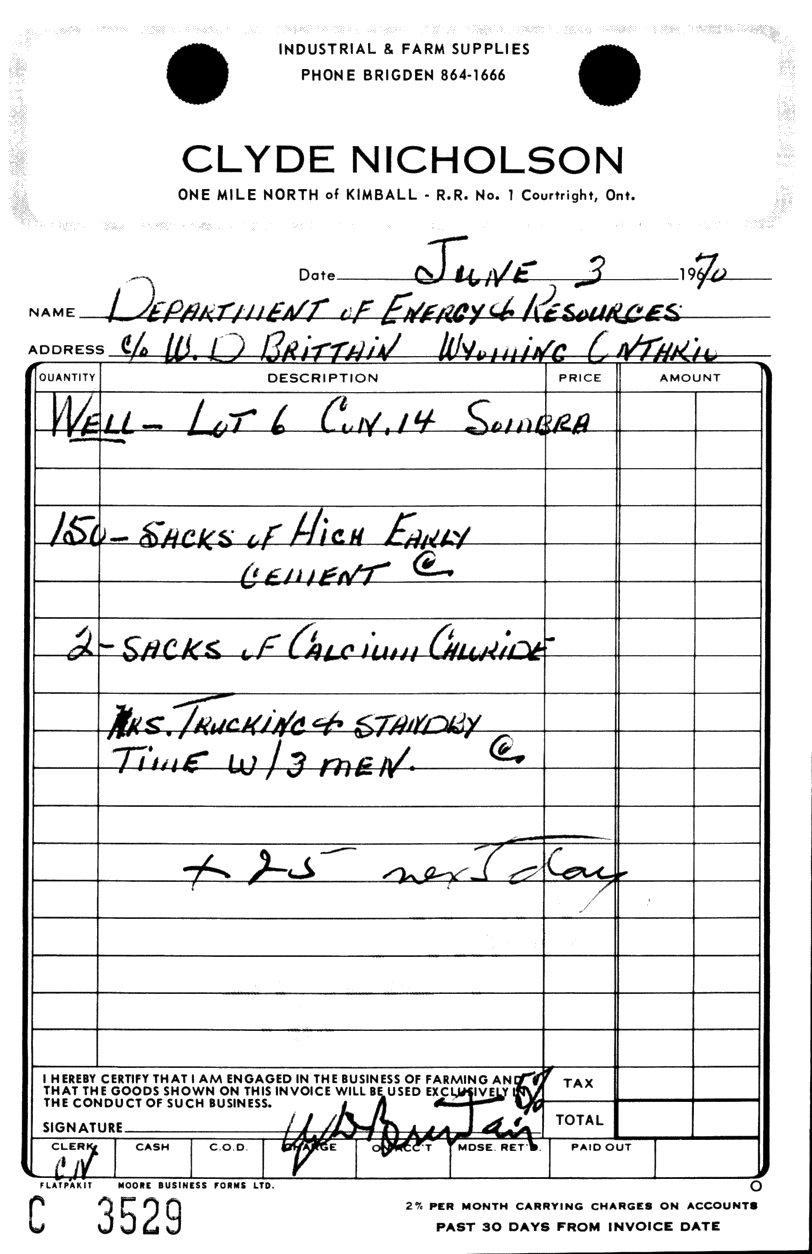 INDUSTRIAL & FARM SUPPLIES
PHONE BRIGDEN 864-1666
CLYDE NICHOLSON
ONE MILE NORTH of KIMBALL - R.R. No. 1 Courtright, Ont.
Date JUNE 3 1970
NAME DEPARTMENT OF ENERGY & RESOURCES
ADDRESS c/o W. D BRITTAIN WYOMING ONTARIO
QUANTITY DESCRIPTION PRICE AMOUNT
WELL - LOT 6 CON. 14 SOMBRA
150 - SACKS OF HIGH EARLY
CEMENT @
2 - SACKS OF CALCIUM CHLORIDE
HRS. TRUCKING & STANDBY
TIME W/3 MEN. @
+ 25 next day
I HEREBY CERTIFY THAT I AM ENGAGED IN THE BUSINESS OF FARMING AND
THAT THE GOODS SHOWN ON THIS INVOICE WILL BE USED EXCLUSIVELY IN
THE CONDUCT OF SUCH BUSINESS.
5%
TAX
SIGNATURE W D Brittain
TOTAL
CLERK CASH C.O.D. CHARGE ON ACC'T MDSE. RET'D. PAID OUT
C.N
FLATPAKIT MOORE BUSINESS FORMS LTD.
C 3529
2% PER MONTH CARRYING CHARGES ON ACCOUNTS
PAST 30 DAYS FROM INVOICE DATE